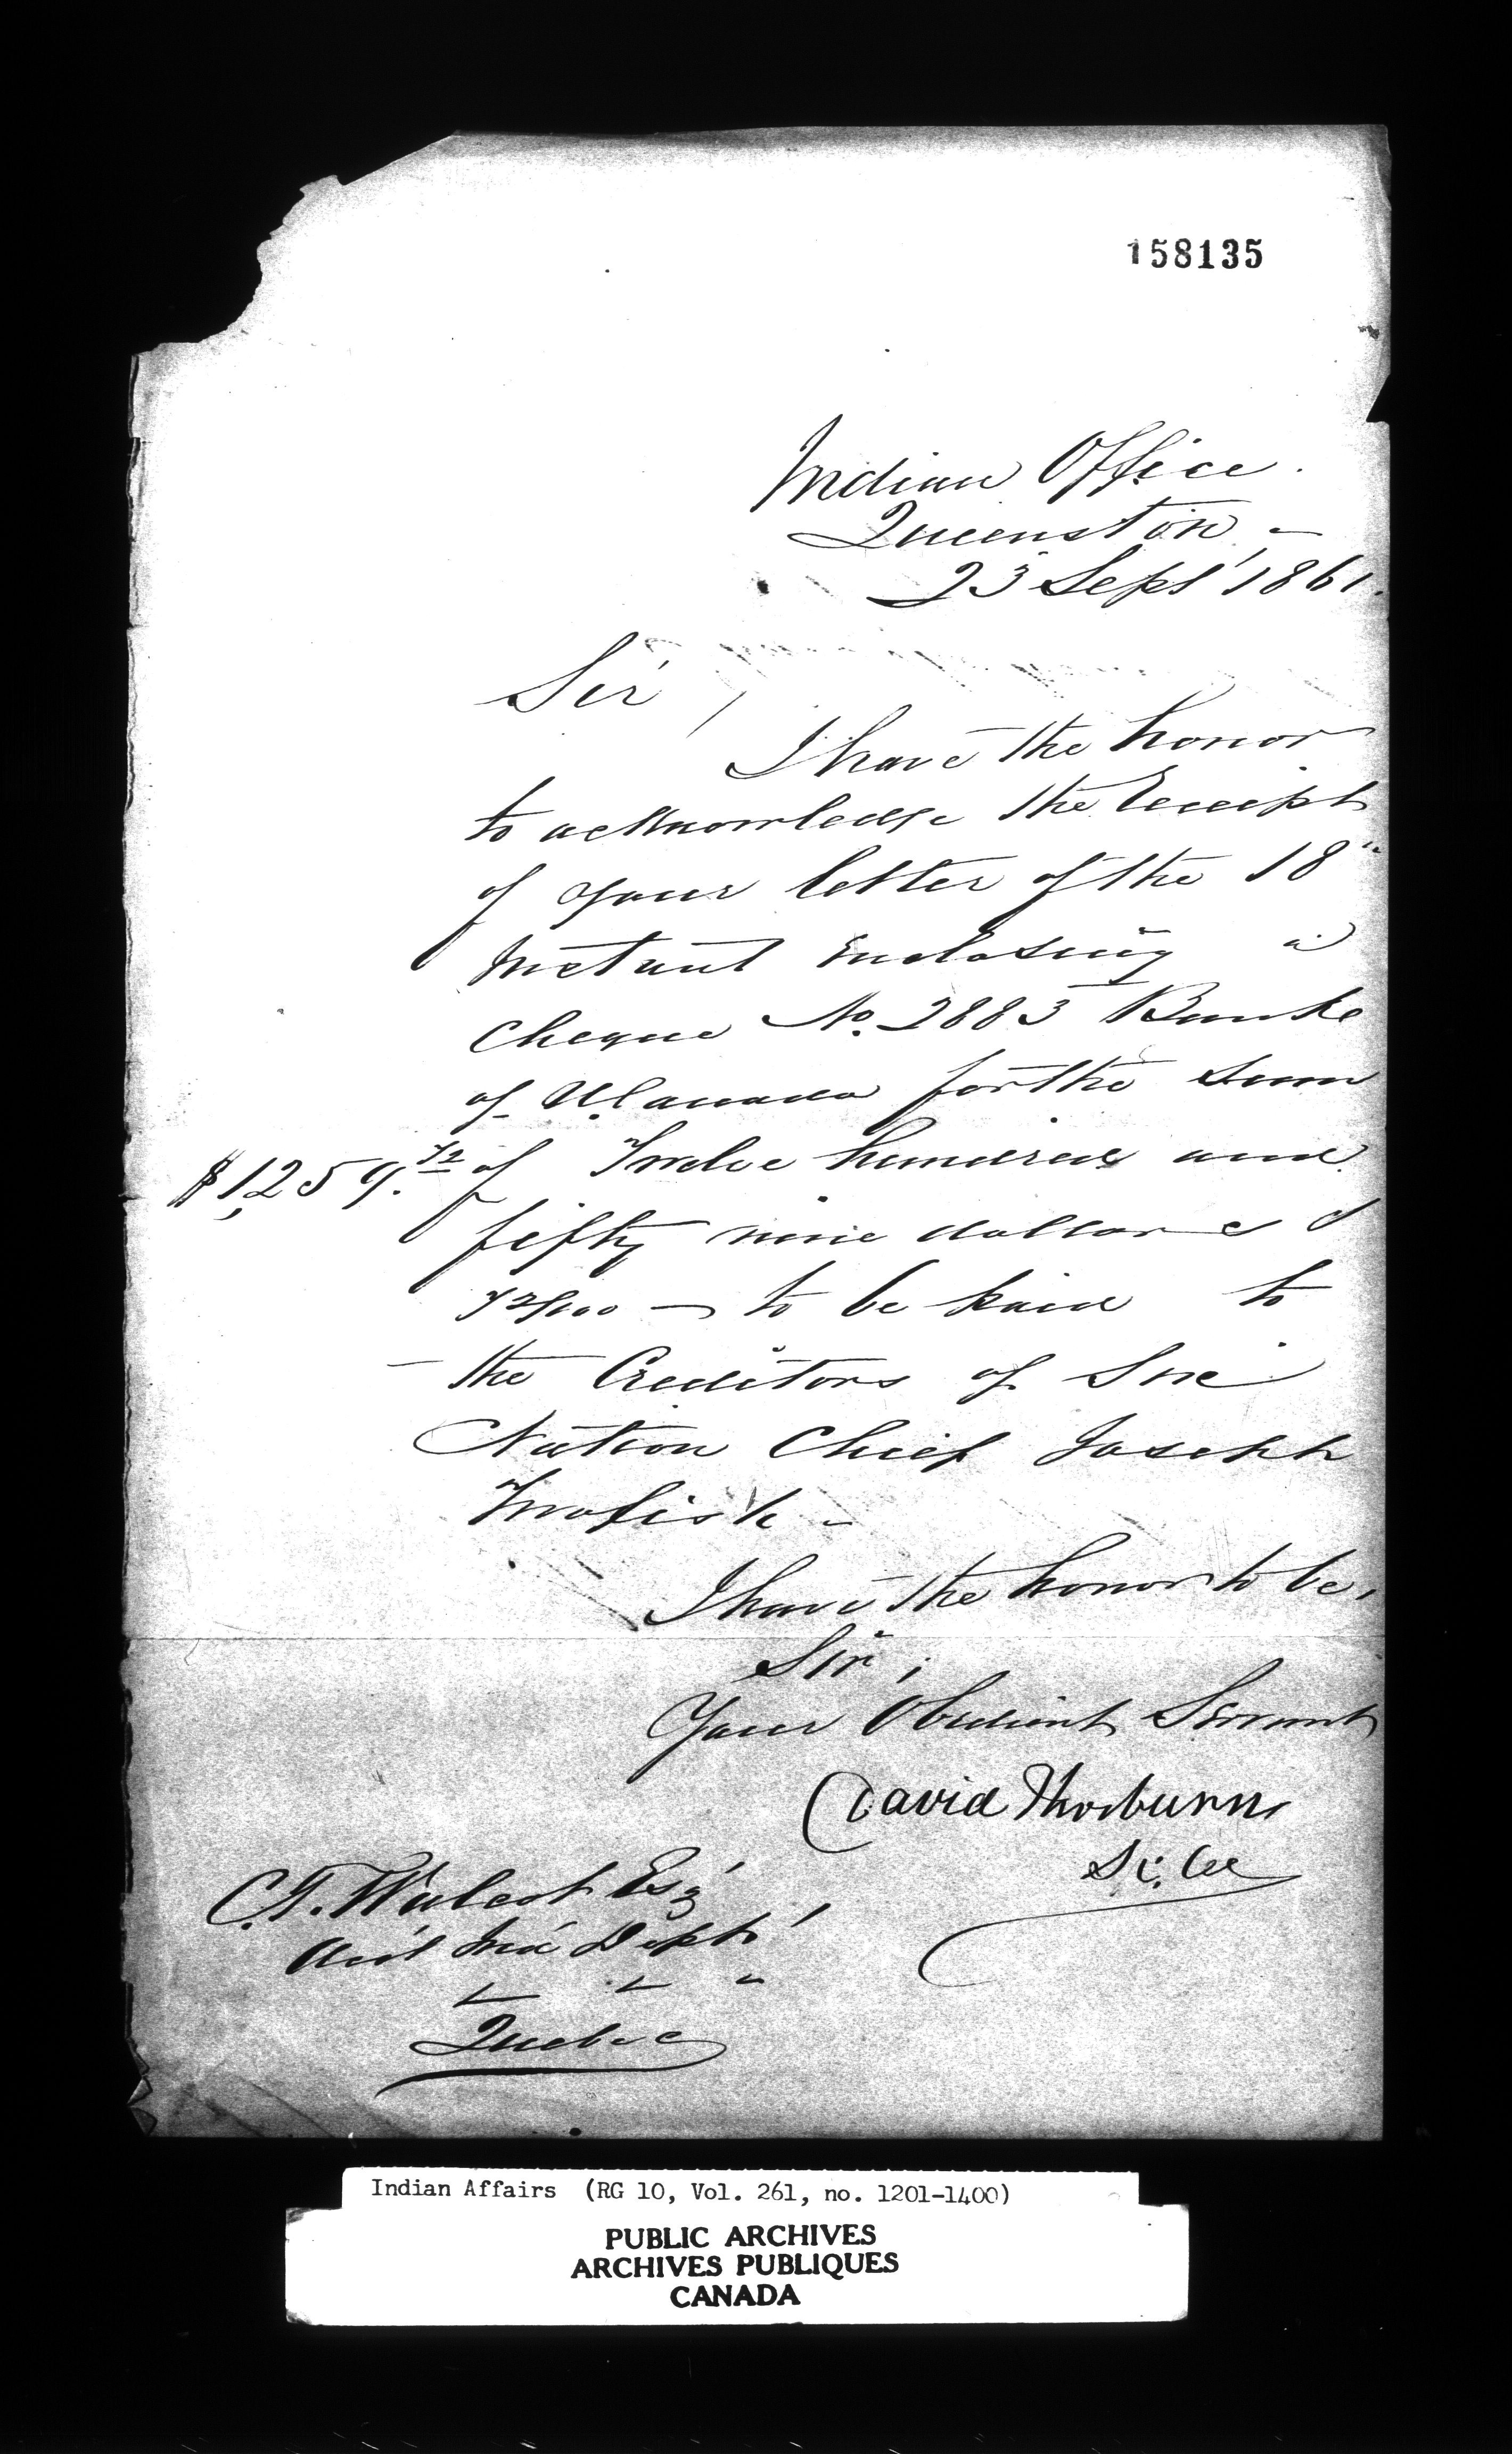 158135
Indian Office.
Queenston -
23 Sept' 1861.
Sir,
I have the honor
to acknowledge the Receipt
of your letter of the 18"
Instant Enclosing a
Cheque No. 2883 Bank
of U. Canada for the Sum
$1,259.72 of Twelve hundred and
fifty nine dollars &
72/100 - to be paid to
- the Creditors of Six
Nation Chief Joseph
I have the honor to be,
Sir,
Your Obedient Servant
David Thorburn
C. T. Walcot Esq'
Ind Dept'
Quebec
Indian Affairs (RG 10, Vol. 261, no. 1201-1400)
PUBLIC ARCHIVES
ARCHIVES PUBLIQUES
CANADA